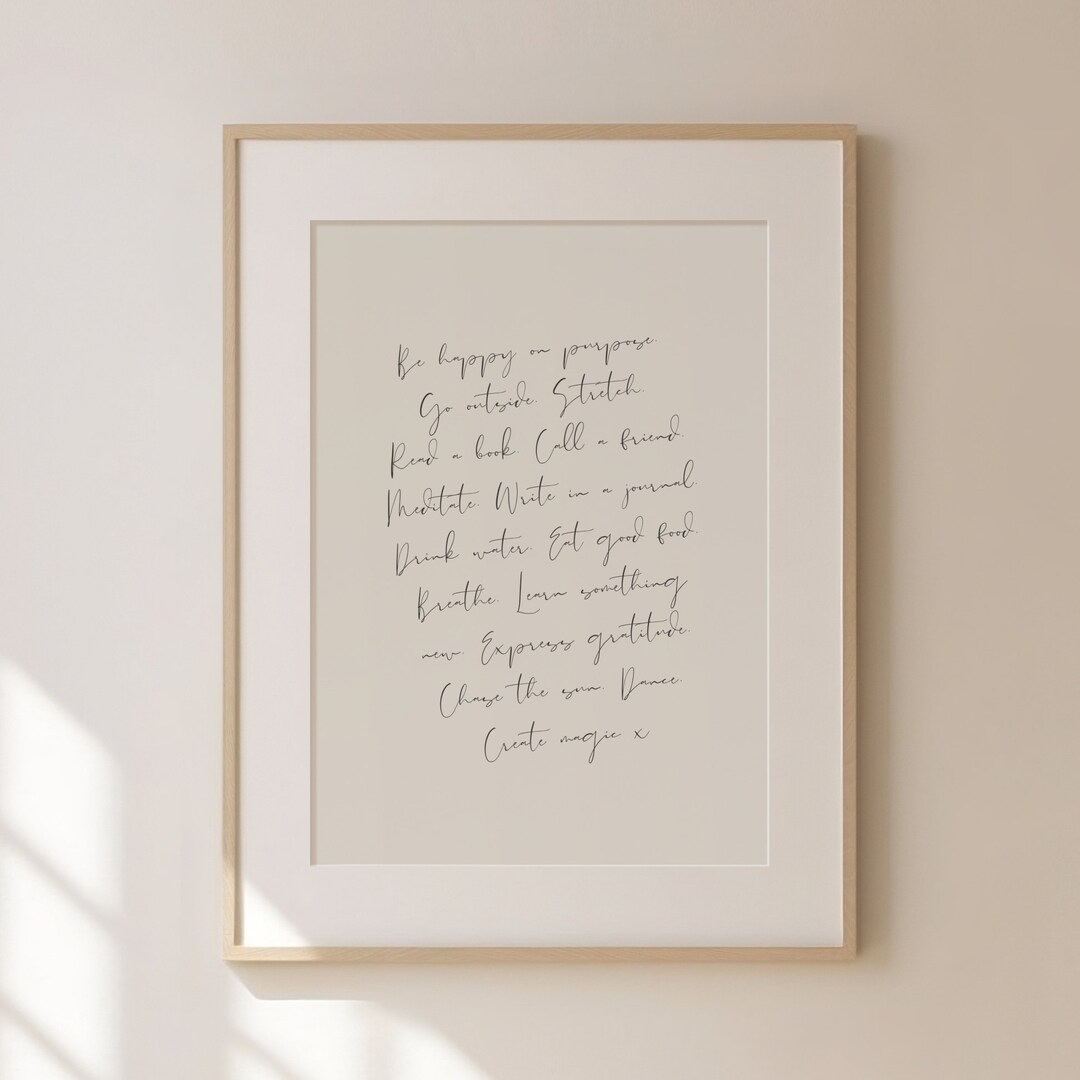 Be happy on purpose.
Go outside. Stretch.
Read a book. Call a friend.
Meditate. Write in a journal.
Drink water. Eat good food.
Breathe. Learn something
new. Express gratitude.
Chase the sun. Dance.
Create magic x